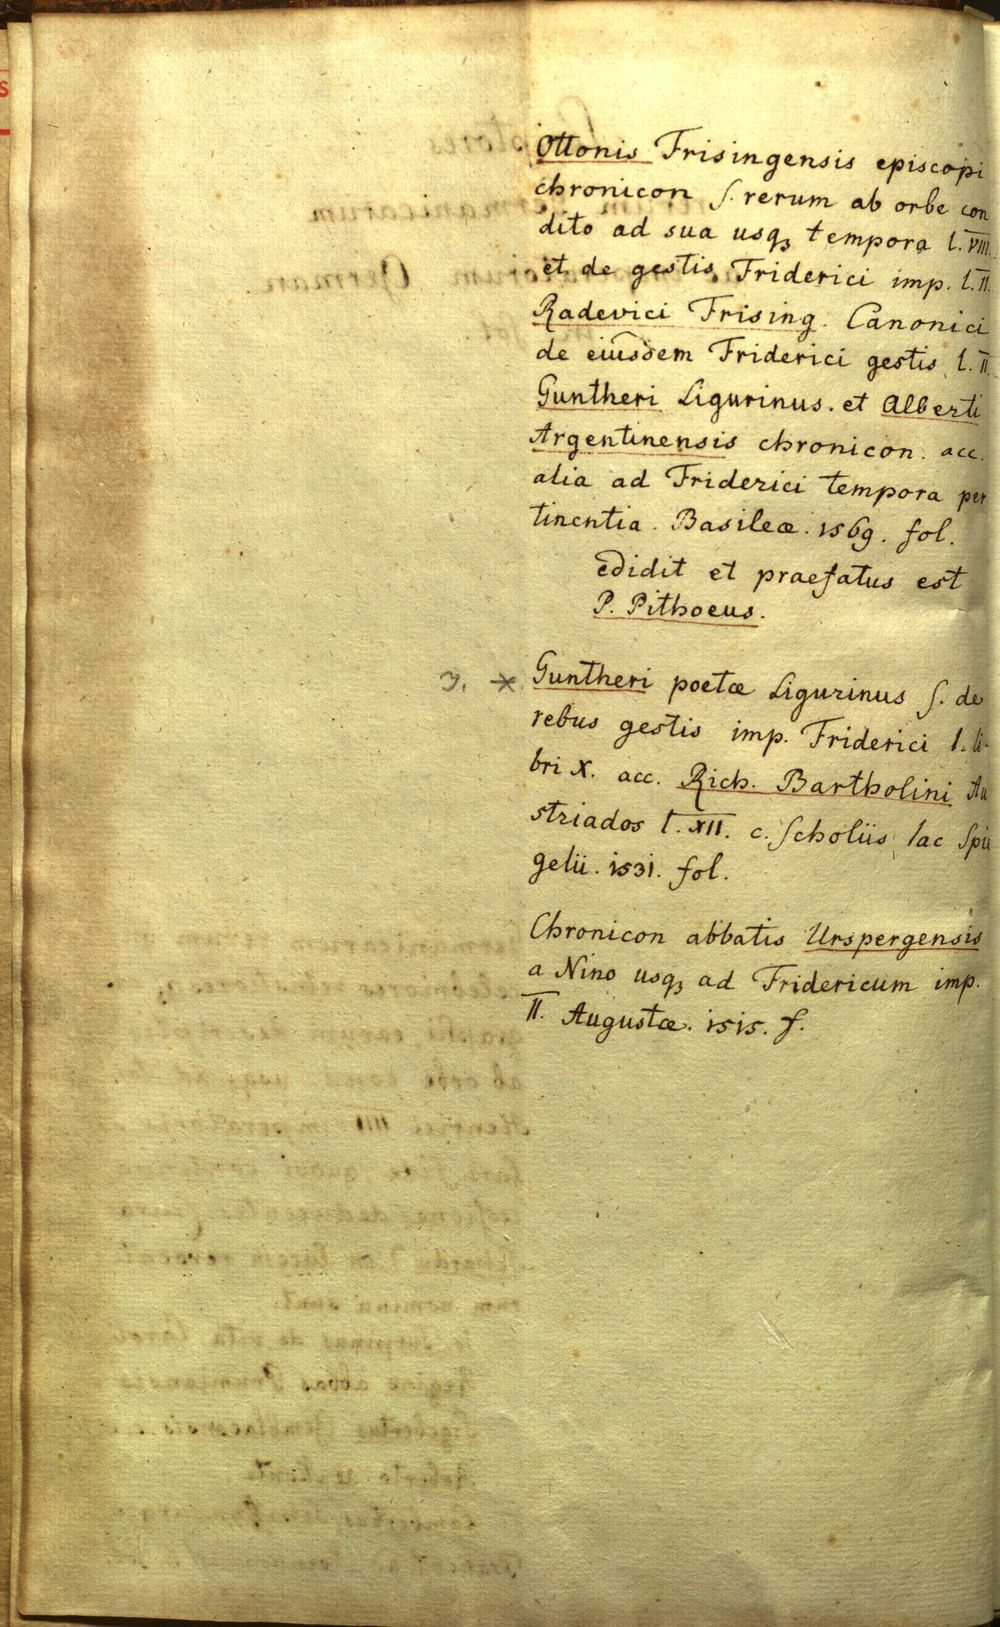 Ottonis Frisingensis episcopi
chronicon s. rerum ab orbe con
dito ad sua usq; tempora l. VIII.
et de gestis Friderici imp. l. II.
Radevici Frising. Canonici
de eiusdem Friderici gestis l. II
Guntheri Ligurinus. et Alberti
Argentinensis chronicon. acc.
alia ad Friderici tempora per
tinentia. Basileæ. 1569. fol.
edidit et praefatus est
P. Pithoeus.
3. * Guntheri poetæ Ligurinus s. de
rebus gestis imp. Friderici I. li-
bri X. acc. Rich. Bartholini Au
striados l. XII. c. Scholiis Iac Spi
gelii. 1531. fol.
Chronicon abbatis Urspergensis
a Nino usq; ad Fridericum imp.
II. Augustæ. 1515. f.